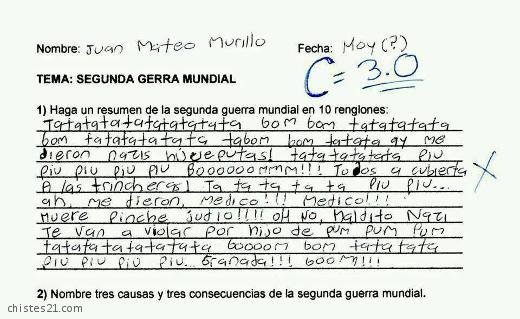 Nombre: Juan Mateo Murillo Fecha: Hoy (?)
C = 3.0
TEMA: SEGUNDA GERRA MUNDIAL
1) Haga un resumen de la segunda guerra mundial en 10 renglones:
Tatatatatatatatatata bom bom tatatatata
bom tatatatatata tabom bom tatata ay me
dieron nazis hijueputas! tatatatatata Piu
Piu piu piu piu Booooooommm!!! Todos a cubierta
A las trincheras! Ta ta ta ta ta piu piu...
ah, me dieron, Medico!!! Medico!!!
Muere Pinche judio!!!! oh No, Maldito Nazi
Te van a violar por hijo de pum pum Pum
tatatatatatatata boooom bom tatatata
piu piu piu piu... Granada!!! boom!!!!
2) Nombre tres causas y tres consecuencias de la segunda guerra mundial.
chistes21.com